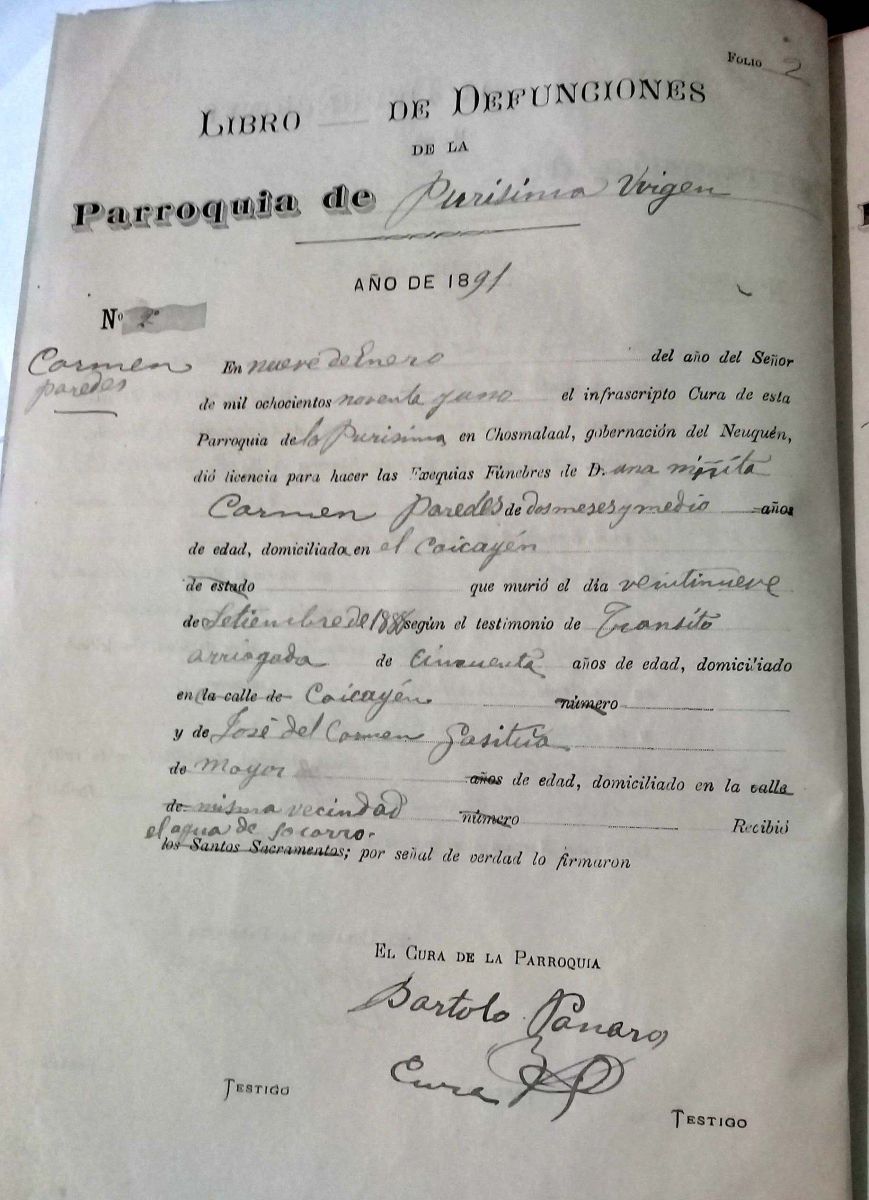 Folio 2
Libro — de Defunciones
de la
Parroquia de Purisima Virgen
Año de 1891
Nº 2
Carmen
paredes
En nueve de Enero del año del Señor
de mil ochocientos noventa y uno el infrascripto Cura de esta
Parroquia de la Purisima en Chosmalaal, gobernación del Neuquén,
dió licencia para hacer las Exequias Fúnebres de D. una
Carmen Paredes de dos meses y medio años
de edad, domiciliada en el Coicayén
de estado que murió el dia veintinueve
de Setiembre de según el testimonio de Transito
arriagada de cincuenta años de edad, domiciliado
en la calle de Coicayén número
y de José del Carmen Gasitúa
de Mayor años de edad, domiciliado en la calle
de misma vecindad número Recibió
el agua de socorro.
los Santos Sacramentos; por señal de verdad lo firmaron
El Cura de la Parroquia
Bartolo Panaro
Cura
Testigo
Testigo